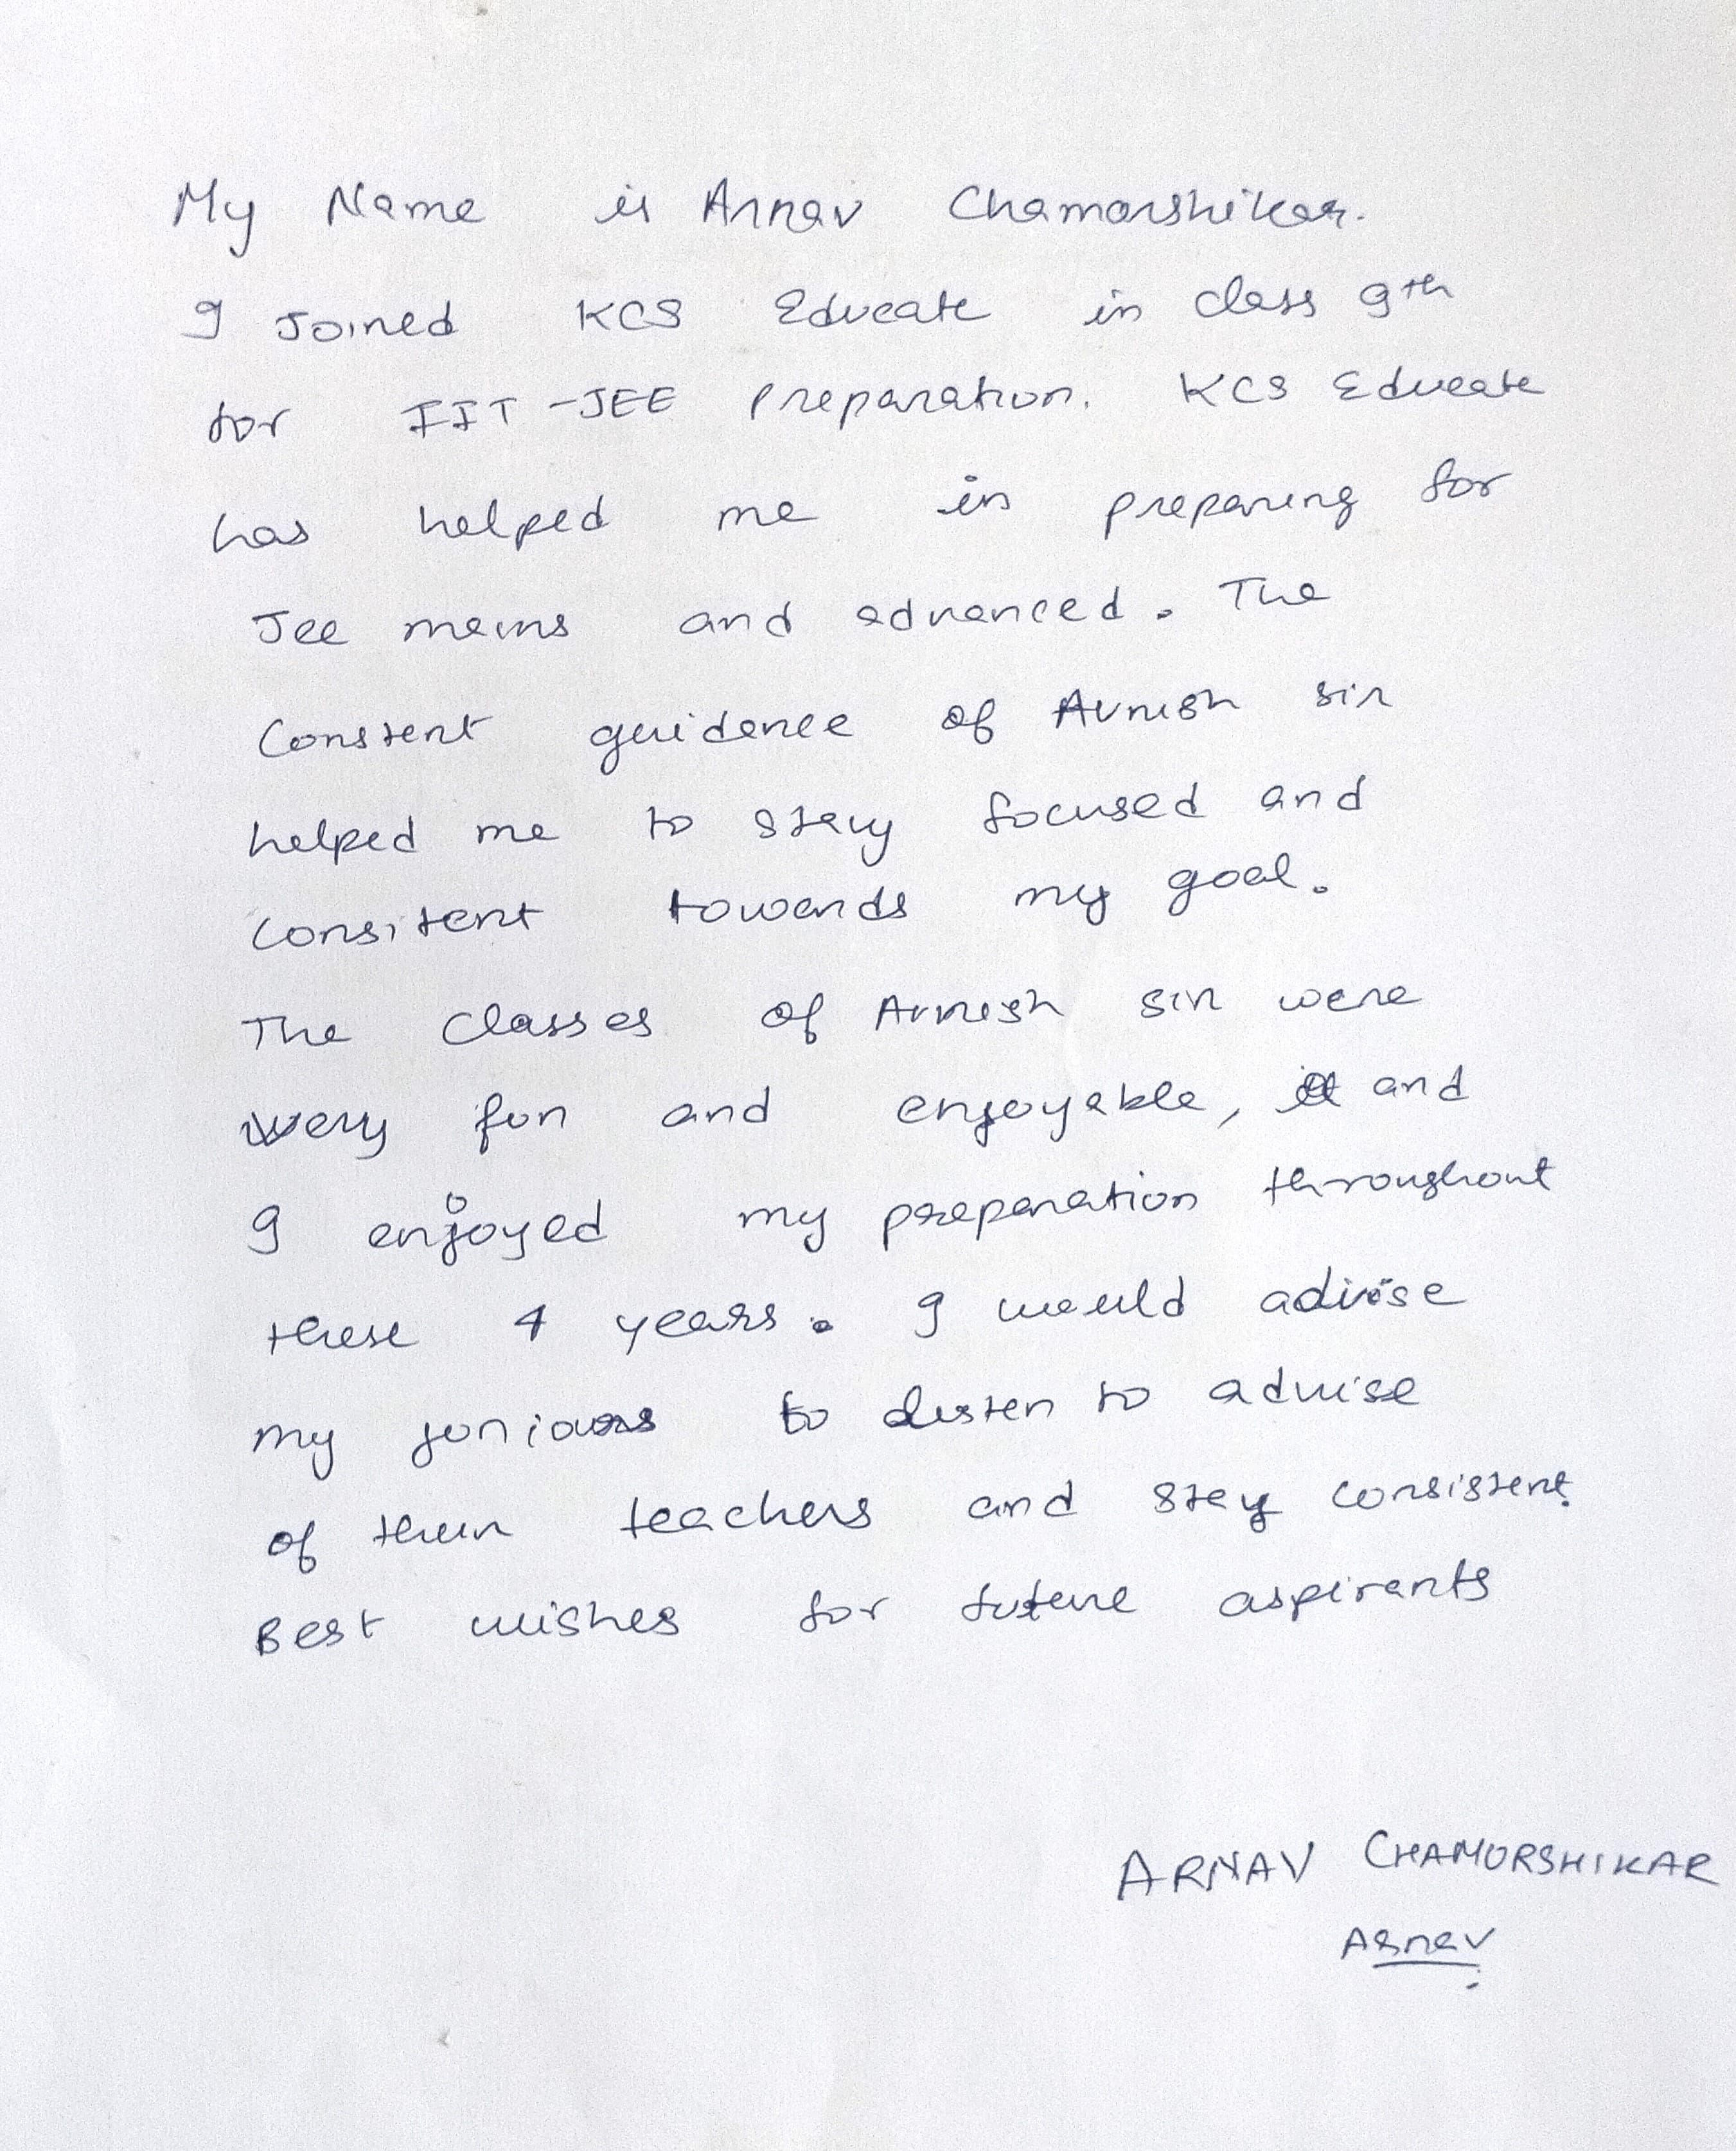 My Name is Arnav Chamorshikar.
I Joined KCS Educate in class 9th
for IIT-JEE Preparation. KCS Educate
has helped me in preparing for
Jee mains and advanced. The
Constent guidence of Avnish sir
helped me to stay focused and
Consitent towards my goal.
The Classes of Avnish sir were
very fun and enjoyable, and
I enjoyed my preparation throughout
these 4 years. I would advise
my juniours to listen to advise
of their teachers and stay consistent.
Best wishes for future aspirants
ARNAV CHAMORSHIKAR
Arnav